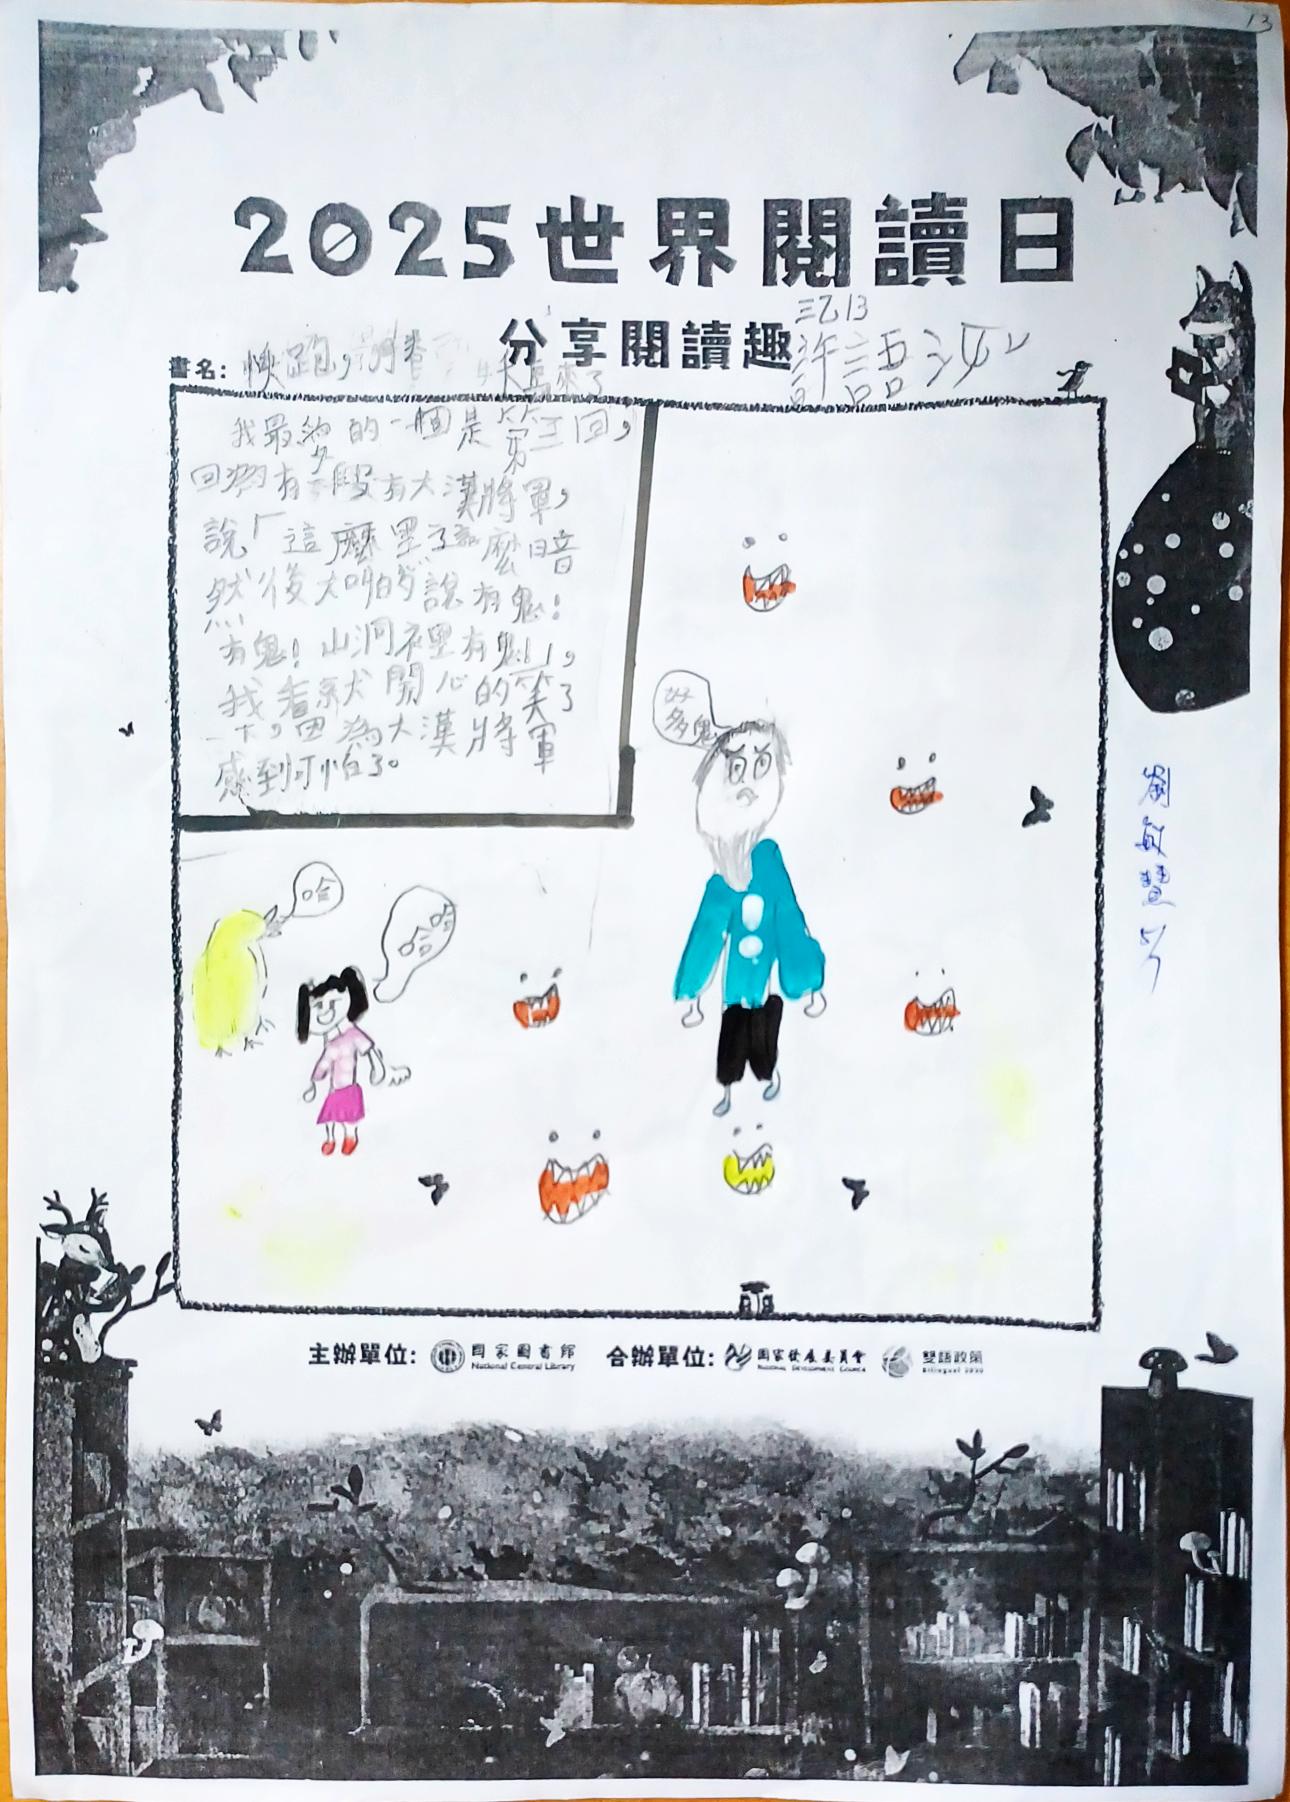 13
2025世界閱讀日
分享閱讀趣
三乙13
許語
書名：快跑，
來了
我最愛的一個是第三回，
回裡有一段有大漢將軍，
說「這麼黑這麼暗
然後大喊說有鬼！
有鬼！山洞裡有鬼！」，
我看就開心的笑了
一下。因為大漢將軍
感到可怕了。
好多鬼
哈
哈哈
劉敏慧
主辦單位：
國家圖書館
National Central Library
合辦單位：
國家發展委員會
NATIONAL DEVELOPMENT COUNCIL
雙語政策
Bilingual 2030